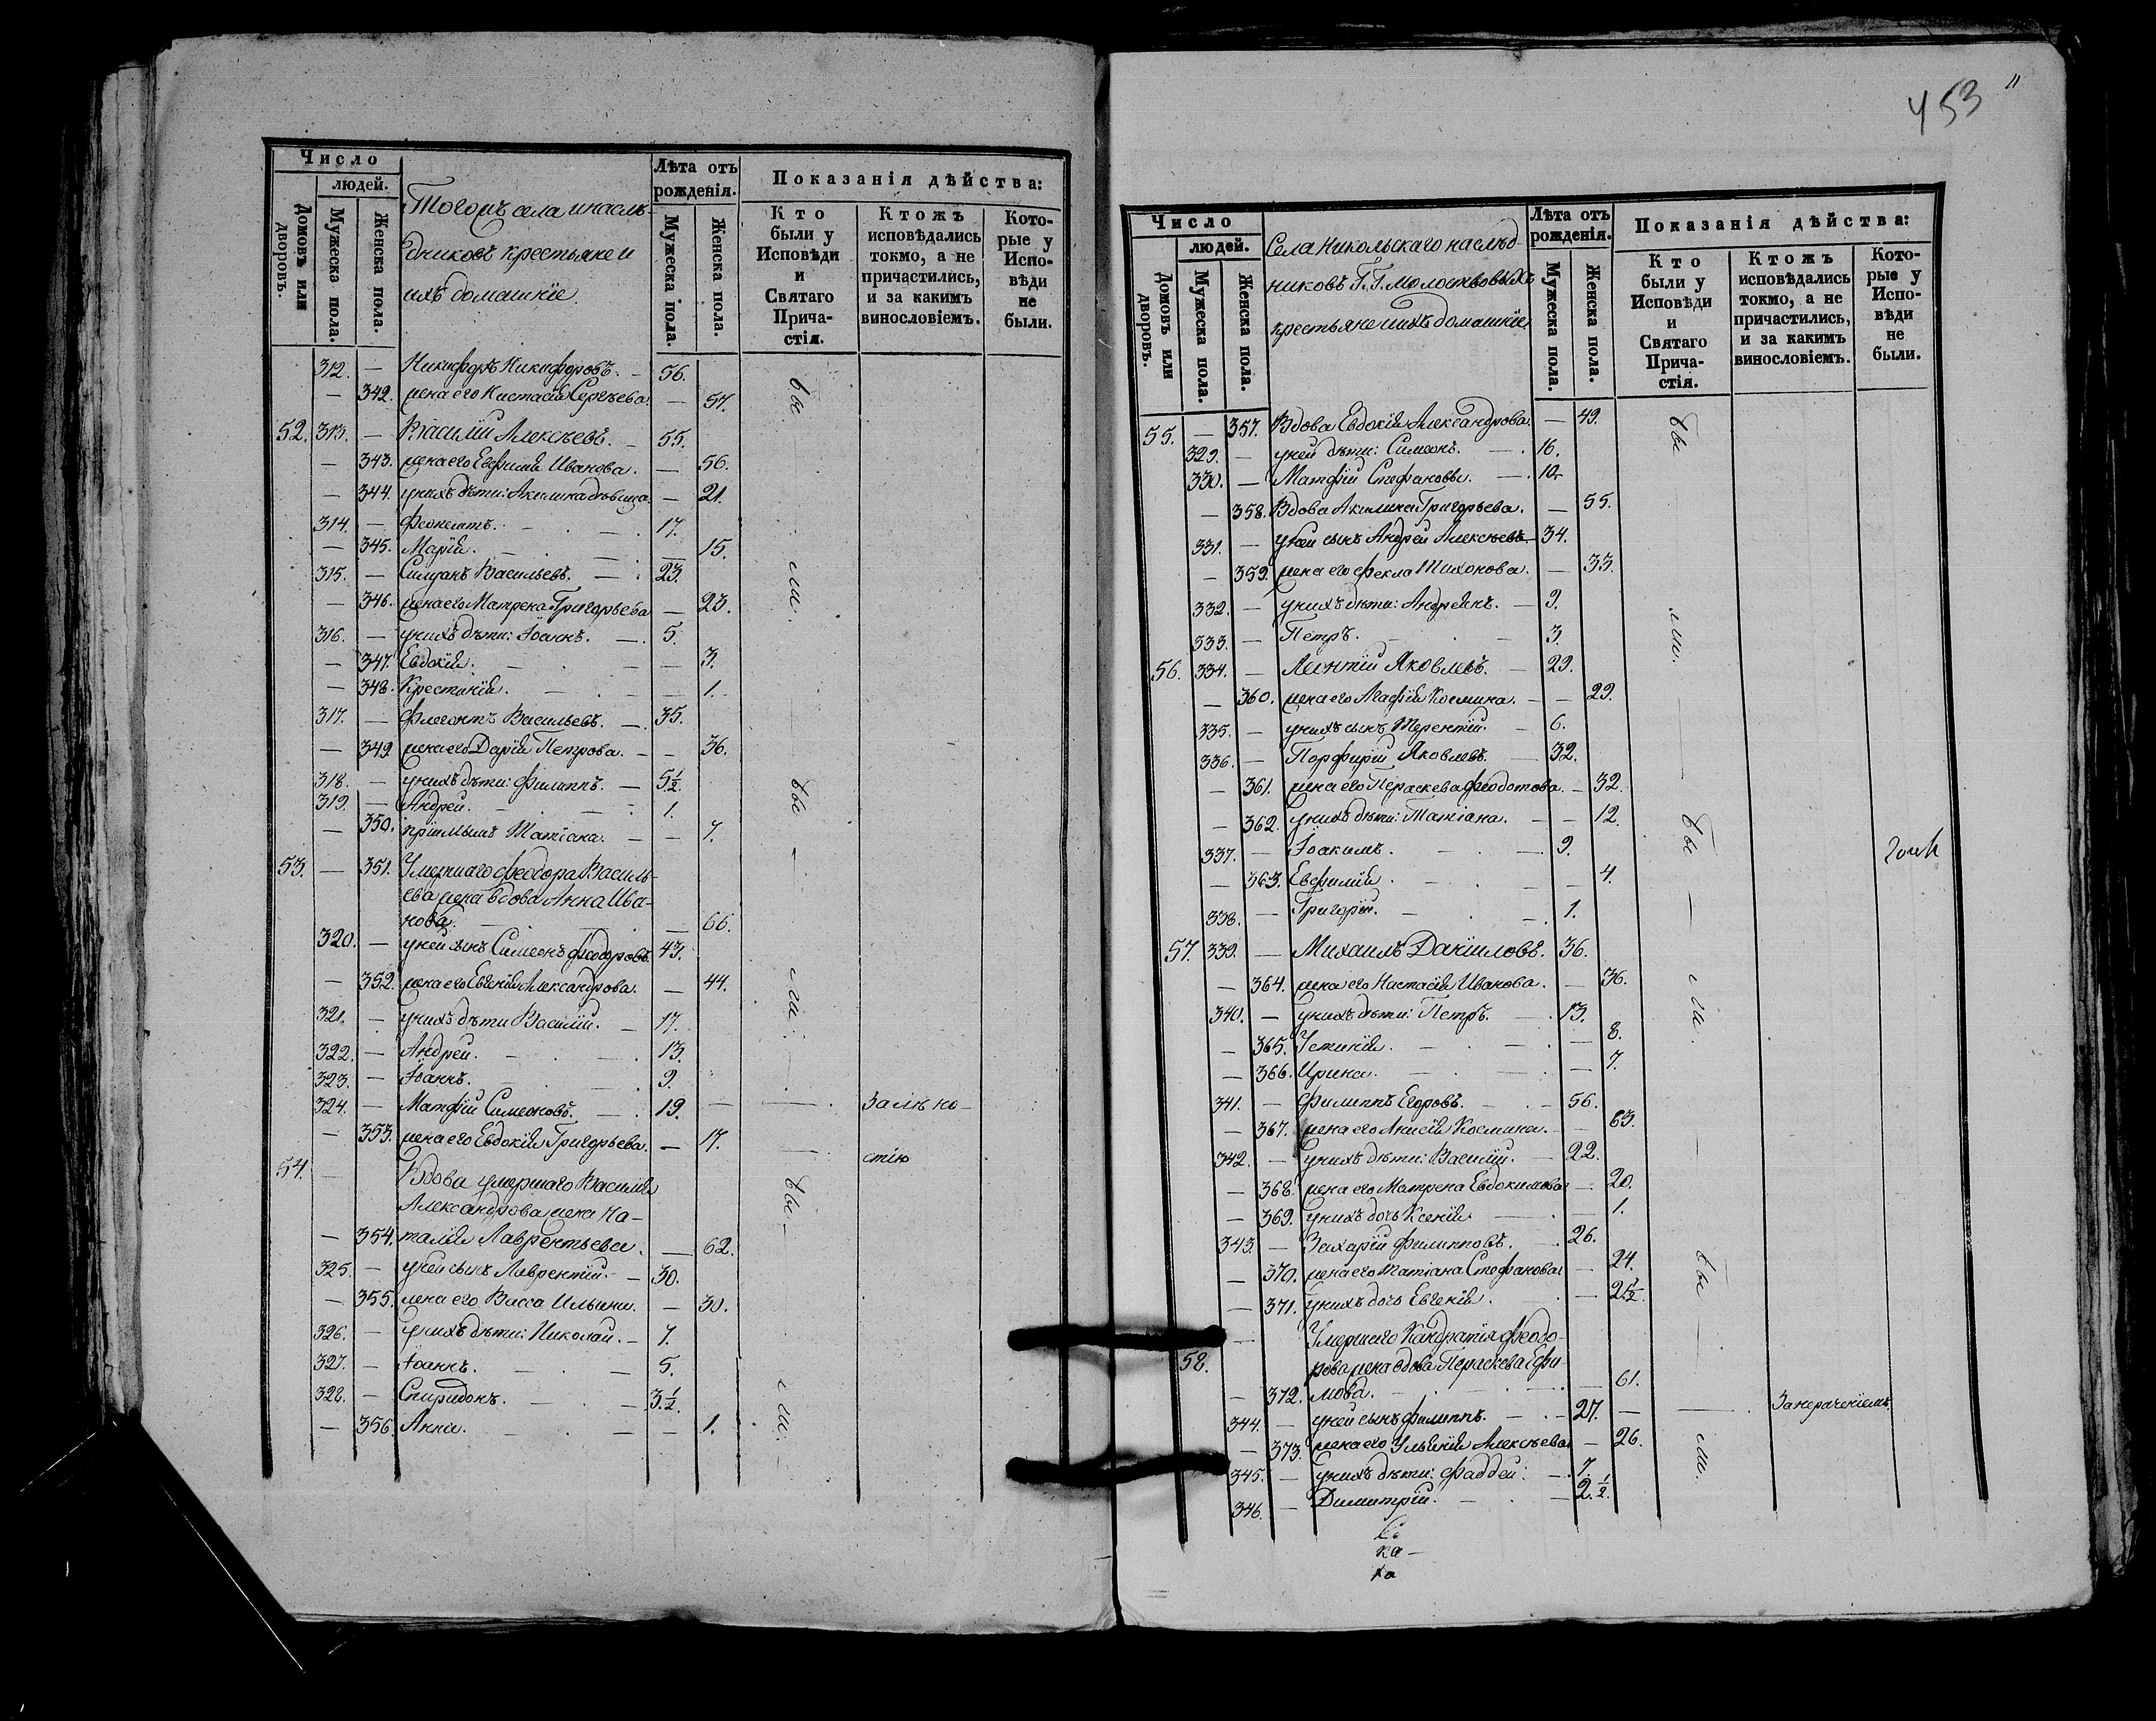 Число
людей.
Домовъ или дворовъ.
Мужеска пола.
Женска пола.
Тогожъ села и наслѣ-
дниковъ крестьяне и
ихъ домашніе.
Лѣта отъ
рожденія.
Мужеска пола.
Женска пола.
Показанія дѣйства:
Кто
были у
Исповѣди
и
Святаго
Прича-
стія.
Ктожъ
исповѣдались
токмо, а не
причастились,
и за какимъ
винословіемъ.
Кото-
рые у
Испо-
вѣди
не
были.
312. — Никифоръ Никифоровъ. — 56.
— 342. жена его Настасія Сергѣева. — 57. бы
52. 313. — Василій Алексѣевъ. — 55.
— 343. жена его Евфимія Иванова. — 56.
— 344. у нихъ дѣти: Акилина дѣвица. — 21.
314. — Феоктистъ. — 17.
— 345. Марія. — 15.
315. — Силуанъ Васильевъ. — 23. ли.
— 346. жена его Матрена Григорьева — 23.
316. — у нихъ дѣти: Іоаннъ. — 5.
— 347. Евдокія. — 3.
— 348. Крестинія. — 1.
317. — Флегонтъ Васильевъ. — 35.
— 349 жена его Дарія Петрова. — 36.
318. — у нихъ дѣти: Филиппъ. — 5½. бы
319. — Андрей. — 1.
— 350. пріимышъ Татіана. — 7.
53. — 351. Умершаго Феодора Василь-
ева жена вдова Анна Ива-
нова. — 66.
320. — у ней сынъ Симеонъ Феодоровъ. 43.
— 352. жена его Евгенія Александрова. — 44. ли.
321. — у нихъ дѣти Василій. — 17.
322. — Андрей. — 13.
323. — Іоаннъ. — 9.
324. — Матфій Симеоновъ. — 19. — За лѣно-
— 353. жена его Евдокія Григорьева. — 17. — стію
54. — Вдова умершаго Василія бы
Александрова жена На-
— 354. талія Лаврентьева. — 62.
325. — у ней сынъ Лаврентій. — 30.
— 355. жена его Васса Ильина. — 30.
326. — у нихъ дѣти: Николай. — 7.
327. — Іоаннъ. — 5.
328. — Спиридонъ. — 3.½. ли.
— 356. Анна. — 1.
453
11
Число
людей.
Домовъ или дворовъ.
Мужеска пола.
Женска пола.
Села Никольскаго наслѣд-
никовъ Г. Г. Молоствовыхъ
крестьяне и ихъ домашніе
Лѣта отъ
рожденія.
Мужеска пола.
Женска пола.
Показанія дѣйства:
Кто
были у
Исповѣди
и
Святаго
Прича-
стія.
Ктожъ
исповѣдались
токмо, а не
причастились,
и за какимъ
винословіемъ.
Кото-
рые у
Испо-
вѣди
не
были.
55. — 357. Вдова Евдокія Александрова. — 49. бы
329. — у ней дѣти: Симеонъ. — 16.
330. — Матфій Стефановы. — 10.
— 358. Вдова Акилина Григорьева. — 55.
331. — у ней сынъ Андрей Алексѣевъ. — 34.
— 359. жена его Фекла Тихонова. — 33.
332. — у нихъ дѣти: Андреянъ. — 9. ли.
333. — Петръ. — 3.
56. 334. — Леонтій Яковлевъ. — 29.
— 360. жена его Агафія Космина. — 29.
335. — у нихъ сынъ Терентій. — 6.
336. — Порфирій Яковлевъ. — 32.
— 361. жена его Параскева Феодотова. — 32.
— 362. у нихъ дѣти: Татіана. — 12. бы
337. — Іоакимъ. — 9.
— 363. Евфимія. — 4.
338. — Григорій. — 1.
57. 339. — Михаилъ Даніиловъ. 36.
— 364. жена его Настасія Иванова. — 36. ли.
340. — у нихъ дѣти: Петръ. — 13.
— 365. Устинія. — 8.
— 366. Ирина. — 7.
341. — Филиппъ Егоровъ. — 56.
— 367. жена его Анисія Космина. — 63.
342. — у нихъ дѣти: Василій. — 22.
— 368. жена его Матрена Евдокимова — 20.
— 369. у нихъ дочь Ксенія — 1.
343. — Захарій Филипповъ. — 26.
— 370. жена его Татіана Стефанова — 24. бы
— 371. у нихъ дочь Евгенія. — 2½.
58. — Умершаго Кандратія Феодо-
рова жена вдова Параскева Ефи-
— 372. мова. — 61.
344. — у ней сынъ Филиппъ. — 27. — За нераченіемъ.
— 373. жена его Ульянія Алексѣева — 26. ли.
345. — у нихъ дѣти: Фаддей. — 7.
346. — Димитрій. — 2.½.
ка-